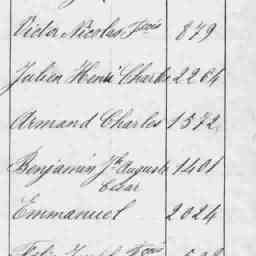 Victor Nicolas, Fçois 879
Julien Henri Charles 2264
Armand Charles 1572
Benjamin Jh Auguste 1401
César
Emmanuel 2024